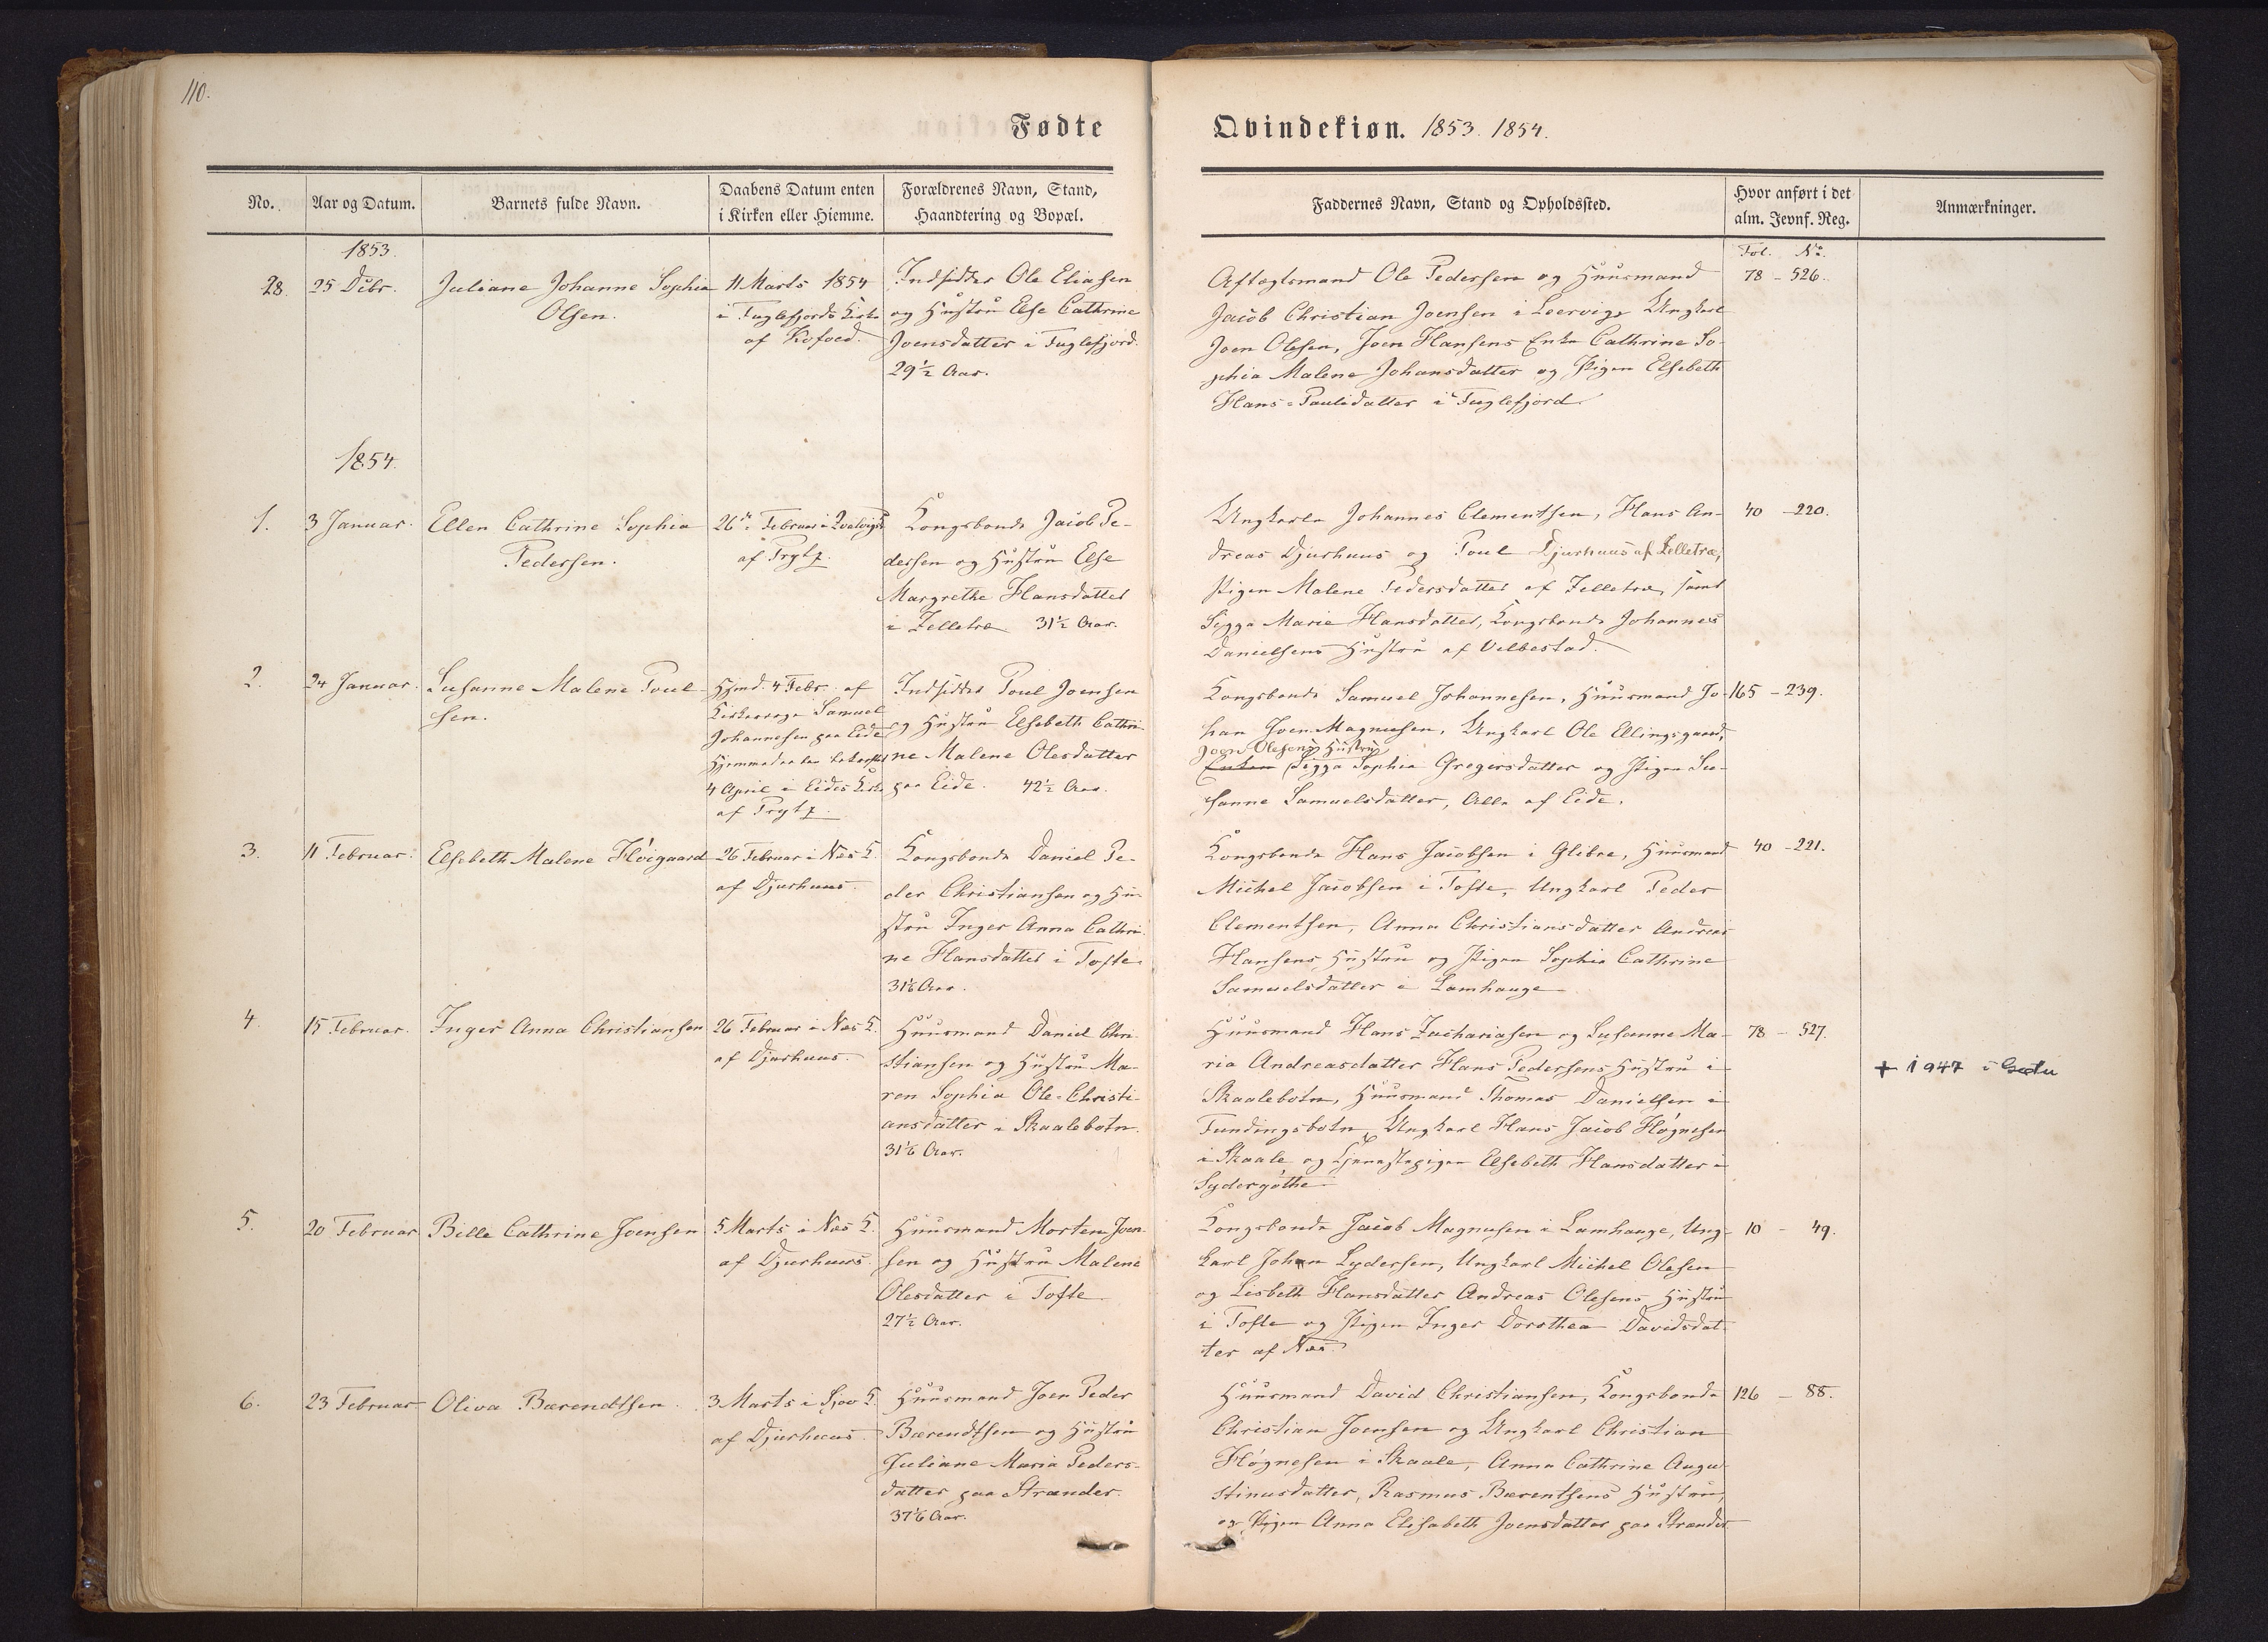 110.
Fødte
Qvindekiøn. 1853. 1854.
No.
Aar og Datum.
Barnets fulde Navn.
Daabens Datum enten
i Kirken eller Hiemme.
Forældrenes Navn, Stand,
Haandtering og Bopæl.
Faddernes Navn, Stand og Opholdssted.
Hvor anført i det
alm. Jevnf. Reg.
Anmærkninger.
Fol. No.
1853.
28.
25 Dcbr.
Juliane Johanne Sophia
Olsen.
11 Marts 1854
i Fuglefjords Kirke
af Kofoed.
Indsidder Ole Eliasen
og Hustru Else Cathrine
Joensdatter i Fuglefjord.
29½ Aar.
Aftægtsmand Ole Pedersen og Huusmand
Jacob Christian Joensen i Leervig, Ungkarl
Joen Olesen, Joen Hansens Enke Cathrine So-
phia Malene Johansdatter og Pigen Elsebeth
Hans-Paulsdatter i Fuglefjord
78 - 526.
1854.
1.
3 Januar.
Ellen Cathrine Sophia
Pedersen.
26de Februar i Qvalvigs K.
af Prytz.
Kongsbonde Jacob Pe-
dersen og Hustru Else
Margrethe Hansdatter
i Zelletræ 31½ Aar.
Ungkarle Johannes Clementsen, Hans An-
dreas Djurhuus og Poul Djurhuus af Zelletræ,
Pigen Malene Pedersdatter af Zelletræ, samt
Sigga Marie Hansdatter, Kongsbonde Johannes
Danielsens Hustru af Velbestad.
40 - 220.
2.
24 Januar.
Susanne Malene Poul-
sen.
Hjmd. 4 Febr. af
Kirkeværge Samuel
Johannesen paa Eide
Hjemmedaaben bekræftet
4 April i Eides Kirke
af Prytz.
Indsidder Poul Joensen
og Hustru Elsebeth Cathri-
ne Malene Olesdatter
paa Eide. 42½ Aar.
Kongsbonde Samuel Johannesen, Huusmand Jo-
han Joen Magnusen, Ungkarl Ole Ellingsgaard,
Joen Olesens Hustru
Enken Sigga Sophia Gregersdatter og Pigen Su-
sanne Samuelsdatter, Alle af Eide.
165 - 239.
3.
11 Februar.
Elsebeth Malene Høigaard
26 Februar i Næs K.
af Djurhuus.
Kongsbonde Daniel Pe-
der Christiansen og Hu-
stru Inger Anna Cathri-
ne Hansdatter i Tofte.
31⅙ Aar.
Kongsbonde Hans Jacobsen i Glibre, Huusmand
Michel Jacobsen i Tofte, Ungkarl Peder
Clementsen, Anna Christiansdatter Andreas
Hansens Hustru og Pigen Sophia Cathrine
Samuelsdatter i Lamhauge
40 - 221.
4.
15 Februar.
Inger Anna Christiansen
26 Februar i Næs K.
af Djurhuus.
Huusmand Daniel Chri-
stiansen og Hustru Ma-
ren Sophia Ole-Christi-
ansdatter i Skaalebotn.
31⅙ Aar.
Huusmand Hans Zachariasen og Susanne Ma-
ria Andreasdatter Hans Pedersens Hustru i
Skaalebotn, Huusmand Thomas Danielsen i
Fundingsbotn, Ungkarl Hans Jacob Høgnesen
i Skaale og Tjenestepigen Elsebeth Hansdatter i
Sydergøthe
78 - 527.
+ 1947 i
5.
20 Februar
Bille Cathrine Joensen
5 Marts i Næs K.
af Djurhuus.
Huusmand Morten Joen-
sen og Hustru Malene
Olesdatter i Tofte.
27½ Aar.
Kongsbonde Jacob Magnusen i Lamhauge, Ung-
karl Johan Lydersen, Ungkarl Michel Olesen
og Lisbeth Hansdatter Andreas Olesens Hustru
i Tofte og Pigen Inger Dorothea Davidsdat-
ter af Næs
10 - 49.
6.
23 Februar
Oliva Bærendtsen.
3 Marts i Sjov K.
af Djurhuus.
Huusmand Joen Peder
Bærendtsen og Hustru
Juliane Maria Peders-
datter paa Strænder.
37⅙ Aar.
Huusmand David Christiansen, Kongsbonde
Christian Joensen og Ungkarl Christian
Høgnesen i Skaale, Anna Cathrine Augu-
stinusdatter, Rasmus Bærentsens Hustru,
og Pigen Anna Elisabeth Joensdatter paa Strænder
126 - 88.